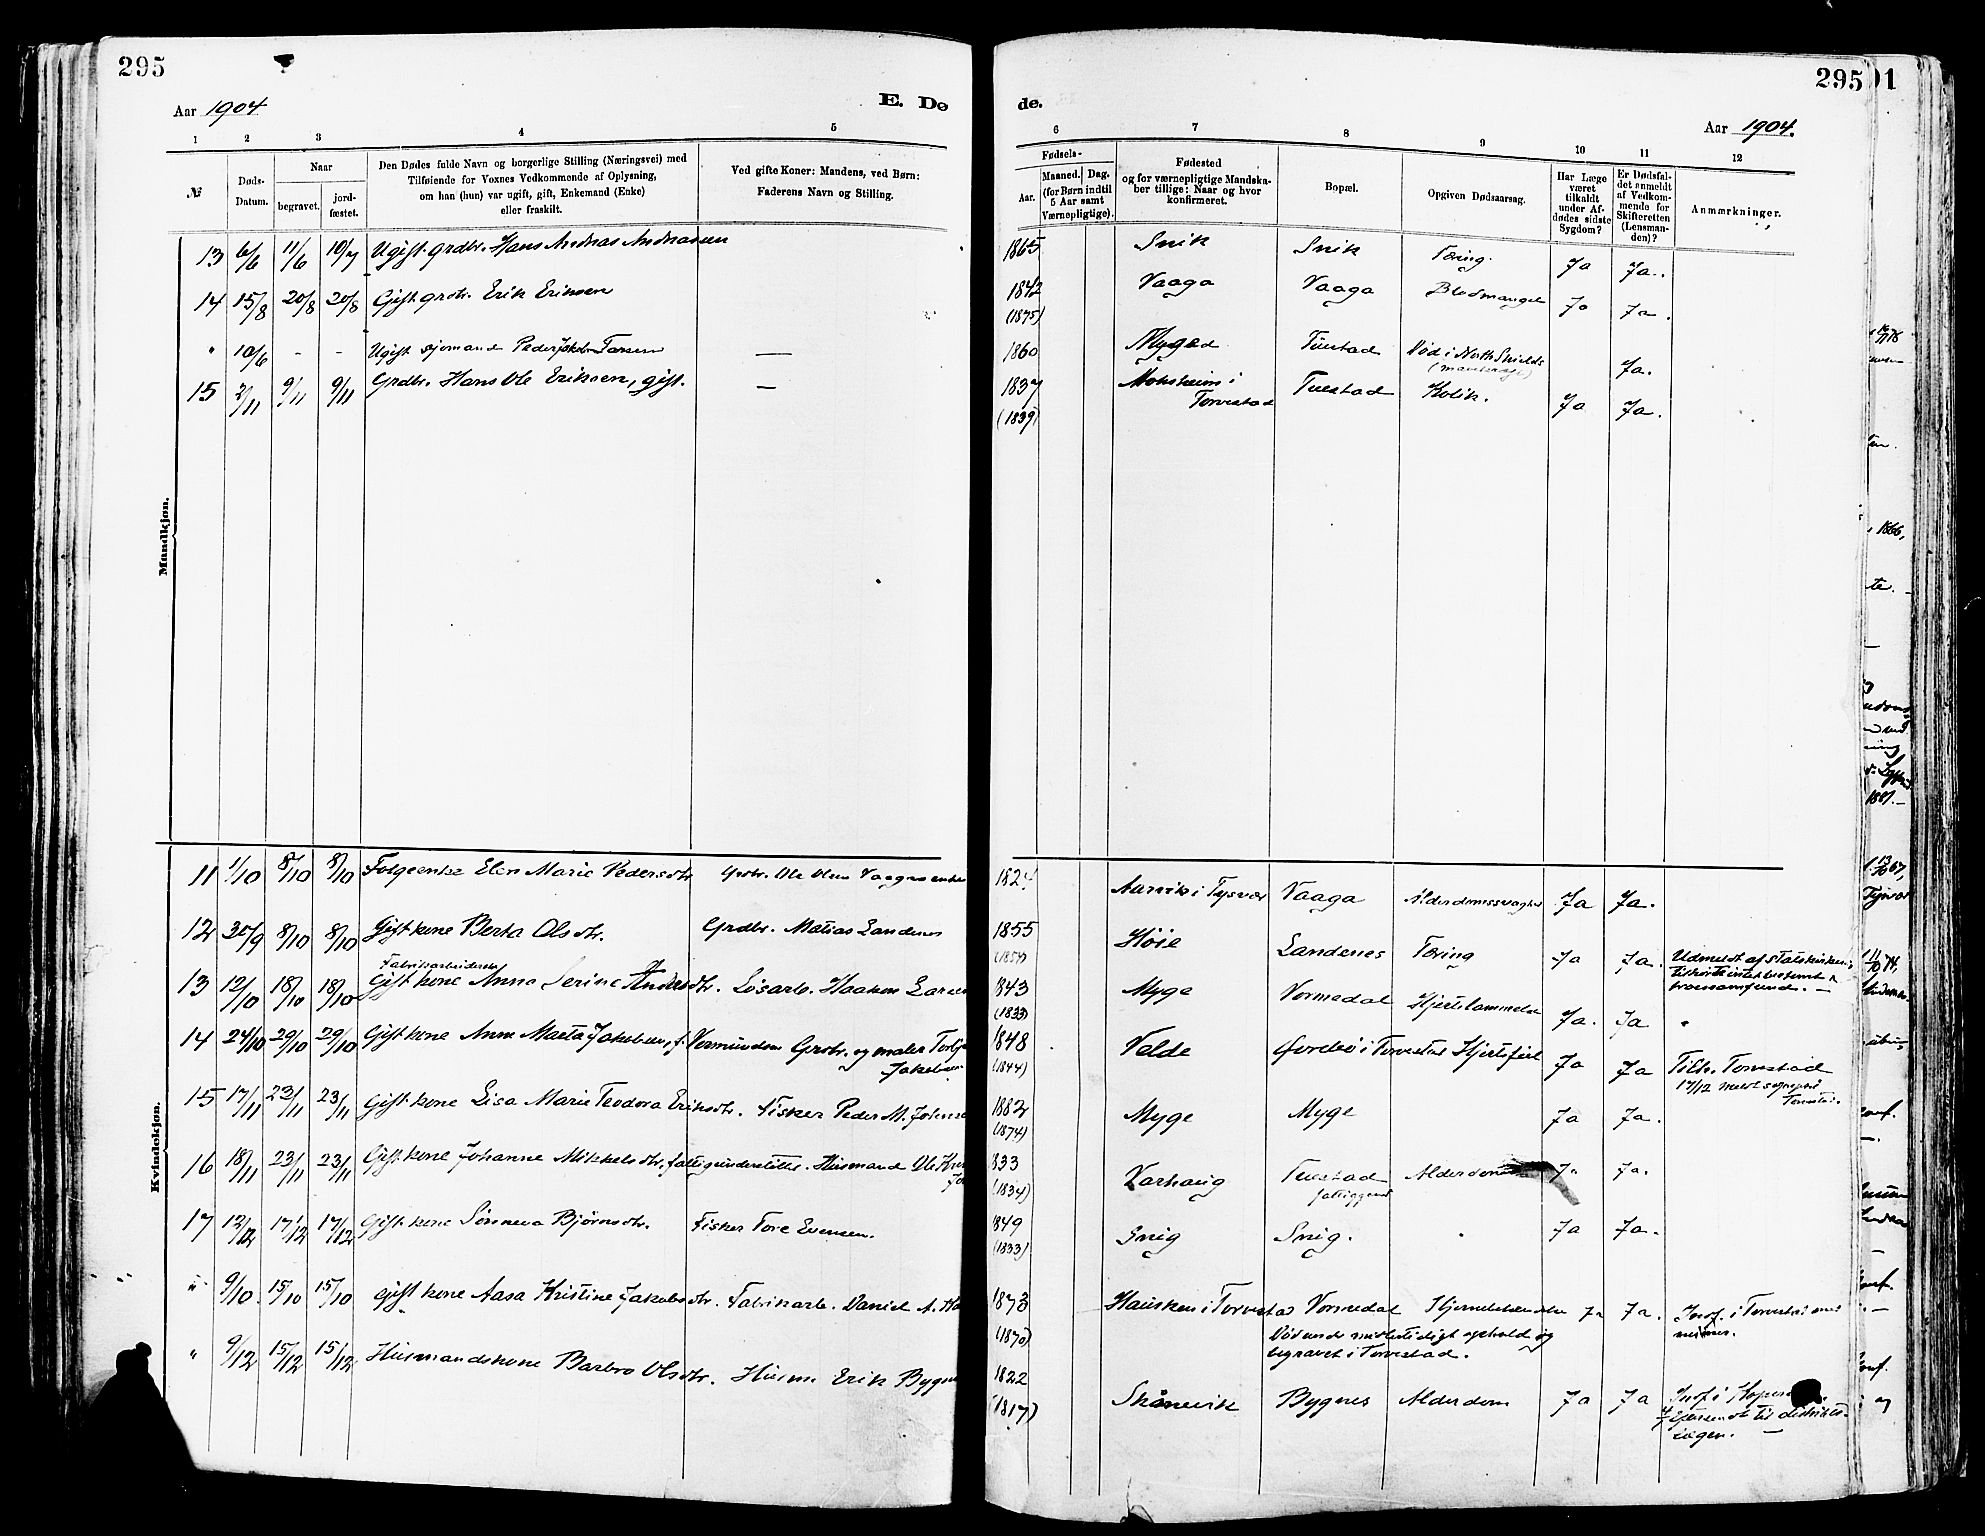 295
Aar 1904.
E. Dø
de.
295
01
Aar 1904.
1 2 3 4 5 6 7 8 9 10 11 12
№
Døds-
Datum.
Naar
begravet.
jord-
fæstet.
Den Dødes fulde Navn og borgerlige Stilling (Næringsvei) med
Tilføiende for Voxnes Vedkommende af Oplysning,
om han (hun) var ugift, gift, Enkemand (Enke)
eller fraskilt.
Ved gifte Koner: Mandens, ved Børn:
Faderens Navn og Stilling.
Fødsels-
Aar.
Maaned. Dag.
(for Børn indtil
5 Aar samt
Værnepligtige).
Fødested
og for værnepligtige Mandska-
ber tillige: Naar og hvor
konfirmeret.
Bopæl.
Opgiven Dødsaarsag.
Har Læge
været
tilkaldt
under Af-
dødes sidste
Sygdom?
Er Dødsfal-
det anmeldt
af Vedkom-
mende for
Skifteretten
(Lensman-
den)?
Anmærkninger.
Mandkjøn.
13 6/6 11/6 10/7 Ugift grdbr. Hans Andreas Andreassen 1865 Snik Snik Tæring. Ja Ja.
14 15/8 20/8 20/8 Gift grdbr. Erik Eriksen 1842 Vaaga Vaaga Blodmangel Ja Ja.
(1875)
" 10/6 - - Ugift sjømand Peder Jakob Larsen — 1860 Myge Tuestad Død i North Shields Ja.
15 2/11 9/11 9/11 Grdbr. Hans Ole Eriksen, gift. — 1837 Moksheim i Tuestad Kolik. Ja Ja.
(1839) Torvestad
Kvindekjøn.
11 1/10 8/10 8/10 Folgeenke Elen Marie Pedersdtr. Grdbr. Ole Olsen Vaagas enke 1824 Aarvik i Tysvær Vaaga Alderdomssvaghed Ja Ja.
12 30/9 8/10 8/10 Gift kone Berta Olsdtr. Grdbr. Matias Sandenes 1855 Høie Sandenes Tæring Ja Ja. Udmeldt af statskirken;
Fabrikarbeiderske
13 12/10 18/10 18/10 Gift kone Anna Serine Andersdtr. Løsarb. Haaken Larsen 1843 Myge Vormedal Hjertelammelse Ja. Ja "
(1833)
14 24/10 29/10 29/10 Gift kone Anna Marta Jakobsen, f. Vermundsen Grdbr. og maler Torbj
Jakobsen
1848 Velde i Torvestad Hjertefeil Ja Ja Tilh. Torvestad
(1844) 17/12 meldt sogneprest i
Torvestad.
15 17/11 23/11 23/11 Gift kone Lisa Marie Teodora Eriksdtr. Fisker Peder M. Johnse 1882 Myge Myge Ja Ja.
(1874)
16 18/11 23/11 23/11 Gift kone Johanne Mikkelsdtr, fattigunderstøtt. Husmand Ole 833 Varhaug Tuestad Alderdom Ja Ja.
(1834)
17 12/12 17/12 17/12 Gift kone Sønneva Bjørnsdtr. Fisker Tore Evensen. 849 Snig Snig. Ja Ja.
(1833)
" 9/10 15/10 15/10 Gift kone Aasa Kristine Jakobsdtr. Fabrikarb. Daniel A. Ha 1873 Hausken i Torvestad Vormedal Ja Ja. Indf. i Torvestad med
(1870) Død under midlertidigt ophold og nummer.
begravet i Torvestad.
" 9/12 15/12 15/12 Husmandskone Barbro Olsdtr. Husm. Erik Bygnes 1822
(1817) Skånevik Bygnes Alderdom Ja Ja